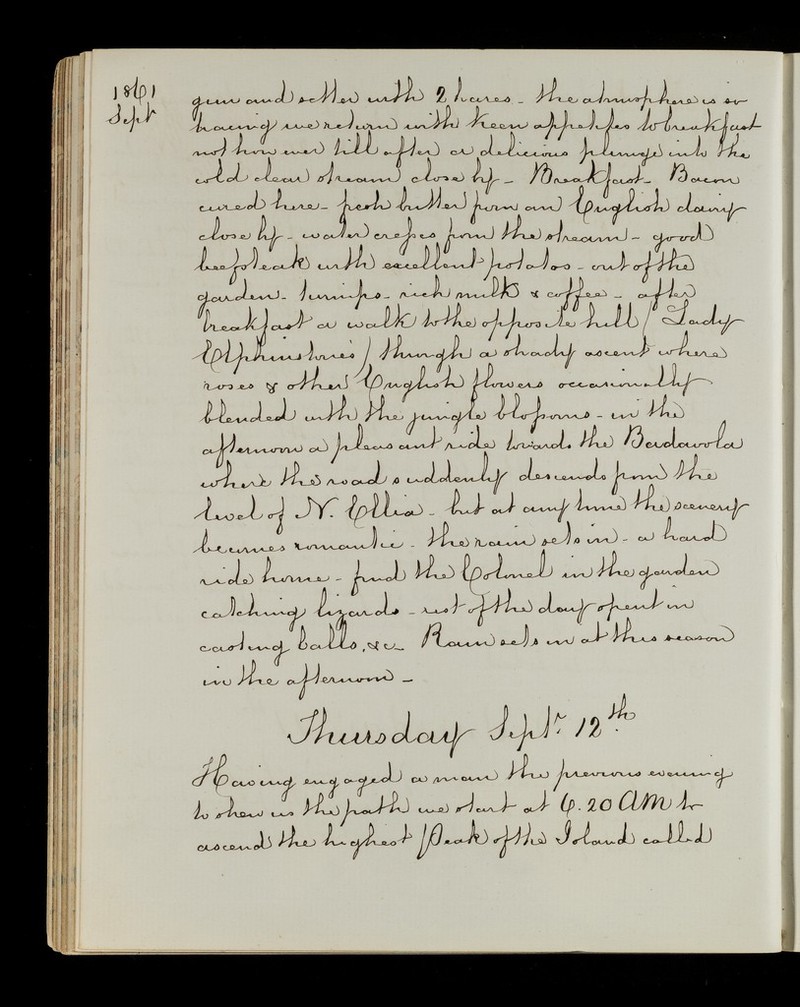 1861
Sept
gun and setter with 2 hares - the atmosphere is so
bracing we return with keen appetites to breakfast
not how ever till after a delicious plunge into the
cold clear stream close by - Breakfast - Bacon
cured here - fresh butter from an English dairy
close by - water cresses from the stream - good
beefsteak with excellent potatos - out of the
garden - turnips - rich milk & coffee - after
breakfast a walk to the opposite hill / Lady
Elphinstone's / through a shady ascent where
roses & other English flowers occasionally
blended with the jungle blossoms - in the
afternoon a pleasant ride towards the Badawola
where the road suddenly descends from the
level of N. Ellia - but at any time the scenery
becomes romantic - the rain sets in - a hard
ride home - find the Colonel in the garden
catching lizards - rest of the day spent in
casting balls, &c - Rain sets in at this season
in the afternoon -
Thursday Septr. 12th
Having engaged a man the previous evening
to shew us the path we start at 6.20 AM to
ascend the highest Peak of the Island called